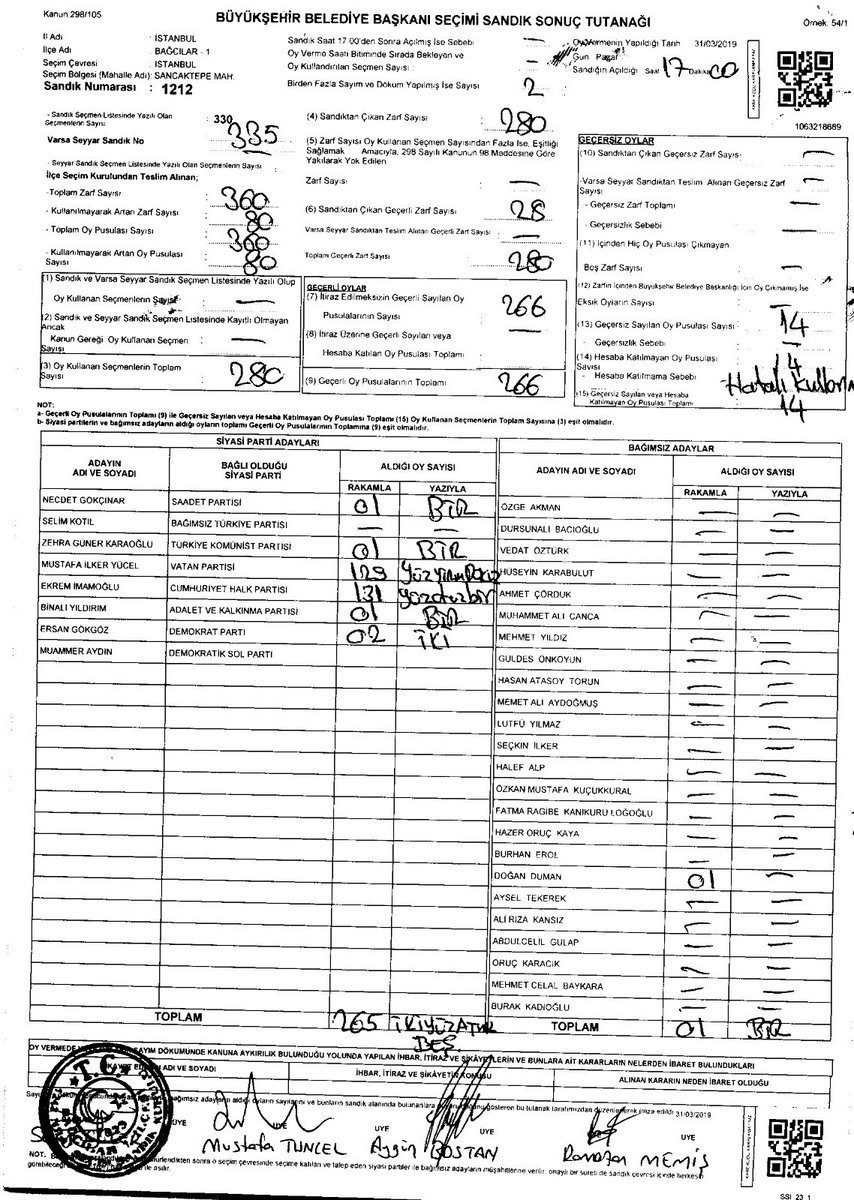 Kanun.298/105
BÜYÜKŞEHİR BELEDİYE BAŞKANI SEÇİMİ SANDIK SONUÇ TUTANAĞI
Örnek: 54/1
İl Adı : İSTANBUL
İlçe Adı : BAĞCILAR - 1
Seçim Çevresi : İSTANBUL
Seçim Bölgesi (Mahalle Adı): SANCAKTEPE MAH.
Sandık Numarası : 1212
Sandık Saat 17:00'den Sonra Açılmış İse Sebebi —
Oy Verme Saati Bitiminde Sırada Bekleyen ve
Oy Kullandırılan Seçmen Sayısı : —
Birden Fazla Sayım ve Döküm Yapılmış İse Sayısı 2
Oy Vermenin Yapıldığı Tarih 31/03/2019
Gün Pazar
Sandığın Açıldığı Saat 17 Dakika 00
1063218689
- Sandık Seçmen Listesinde Yazılı Olan
Seçmenlerin Sayısı : 330
335
Varsa Seyyar Sandık No —
- Seyyar Sandık Seçmen Listesinde Yazılı Olan Seçmenlerin Sayısı :
İlçe Seçim Kurulundan Teslim Alınan;
-Toplam Zarf Sayısı : 360
- Kullanılmayarak Artan Zarf Sayısı : 80
- Toplam Oy Pusulası Sayısı : 360
- Kullanılmayarak Artan Oy Pusulası
Sayısı : 80
(1) Sandık ve Varsa Seyyar Sandık Seçmen Listesinde Yazılı Olup
Oy Kullanan Seçmenlerin Sayısı : —
(2) Sandık ve Seyyar Sandık Seçmen Listesinde Kayıtlı Olmayan
Ancak
Kanun Gereği Oy Kullanan Seçmen
Sayısı : —
(3) Oy Kullanan Seçmenlerin Toplam
Sayısı : 280
(4) Sandıktan Çıkan Zarf Sayısı : 280
(5) Zarf Sayısı Oy Kullanan Seçmen Sayısından Fazla İse, Eşitliği
Sağlamak Amacıyla, 298 Sayılı Kanunun 98 Maddesine Göre
Yakılarak Yok Edilen
Zarf Sayısı : —
(6) Sandıktan Çıkan Geçerli Zarf Sayısı : 28
Varsa Seyyar Sandıktan Teslim Alınan Geçerli Zarf Sayısı : —
Toplam Geçerli Zarf Sayısı : 280
GEÇERLİ OYLAR
(7) İtiraz Edilmeksizin Geçerli Sayılan Oy
Pusulalarının Sayısı : 266
(8) İtiraz Üzerine Geçerli Sayılan veya
Hesaba Katılan Oy Pusulası Toplamı : —
(9) Geçerli Oy Pusulalarının Toplamı : 266
GEÇERSİZ OYLAR
(10) Sandıktan Çıkan Geçersiz Zarf Sayısı : —
-Varsa Seyyar Sandıktan Teslim Alınan Geçersiz Zarf
Sayısı : —
- Geçersiz Zarf Toplamı : —
- Geçersizlik Sebebi : —
(11) İçinden Hiç Oy Pusulası Çıkmayan
Boş Zarf Sayısı : —
(12) Zarfın İçinden Büyükşehir Belediye Başkanlığı İçin Oy Çıkmamış İse
Eksik Oyların Sayısı : —
(13) Geçersiz Sayılan Oy Pusulası Sayısı : 14
- Geçersizlik Sebebi : —
(14) Hesaba Katılmayan Oy Pusulası
Sayısı : 14
- Hesaba Katılmama Sebebi : Hatalı Kullanım
(15) Geçersiz Sayılan veya Hesaba
Katılmayan Oy Pusulası Toplamı : 14
NOT:
a- Geçerli Oy Pusulalarının Toplamı (9) ile Geçersiz Sayılan veya Hesaba Katılmayan Oy Pusulası Toplamı (15) Oy Kullanan Seçmenlerin Toplam Sayısına (3) eşit olmalıdır.
b- Siyasi partilerin ve bağımsız adayların aldığı oyların toplamı Geçerli Oy Pusulalarının Toplamına (9) eşit olmalıdır.
SİYASİ PARTİ ADAYLARI
ADAYIN ADI VE SOYADI BAĞLI OLDUĞU SİYASİ PARTİ ALDIĞI OY SAYISI
RAKAMLA YAZIYLA
NECDET GÖKÇINAR SAADET PARTİSİ 01 BİR
SELİM KOTİL BAĞIMSIZ TÜRKİYE PARTİSİ — —
ZEHRA GÜNER KARAOĞLU TÜRKİYE KOMÜNİST PARTİSİ 01 BİR
MUSTAFA İLKER YÜCEL VATAN PARTİSİ 129 Yüzyirmidokuz
EKREM İMAMOĞLU CUMHURİYET HALK PARTİSİ 131 yüzotuzbir
BİNALİ YILDIRIM ADALET VE KALKINMA PARTİSİ 01 BİR
ERSAN GÖKGÖZ DEMOKRAT PARTİ 02 İKİ
MUAMMER AYDIN DEMOKRATİK SOL PARTİ
TOPLAM 265 İKİYÜZATMIŞ BEŞ
BAĞIMSIZ ADAYLAR
ADAYIN ADI VE SOYADI ALDIĞI OY SAYISI
RAKAMLA YAZIYLA
ÖZGE AKMAN — —
DURSUNALİ BACIOĞLU — —
VEDAT ÖZTÜRK — —
HÜSEYİN KARABULUT — —
AHMET ÇÖRDÜK — —
MUHAMMET ALİ CANCA — —
MEHMET YILDIZ — —
GÜLDES ÖNKOYUN — —
HASAN ATASOY TORUN — —
MEMET ALİ AYDOĞMUŞ — —
LÜTFÜ YILMAZ — —
SEÇKİN İLKER — —
HALEF ALP — —
ÖZKAN MUSTAFA KÜÇÜKKURAL — —
FATMA RAGİBE KANIKURU LOĞOĞLU — —
HAZER ORUÇ KAYA — —
BURHAN EROL — —
DOĞAN DUMAN 01 —
AYSEL TEKEREK — —
ALİ RIZA KANSIZ — —
ABDULCELİL GULAP — —
ORUÇ KARACIK — —
MEHMET CELAL BAYKARA — —
BURAK KADIOĞLU — —
TOPLAM 01 BİR
SAYIM DÖKÜMÜNDE KANUNA AYKIRILIK BULUNDUĞU YOLUNDA YAPILAN İHBAR, İTİRAZ VE ŞİKAYETLERİN VE BUNLARA AİT KARARLARIN NELERDEN İBARET BULUNDUKLARI
ADI VE SOYADI İHBAR, İTİRAZ VE ŞİKAYETİN KONUSU ALINAN KARARIN NEDEN İBARET OLDUĞU
bağımsız adayların aldığı oyların sayılarını ve bunların sandık alanında bulunanlara gösteren bu tutanak tarafımızdan düzenlenerek imza edildi 31/03/2019
T.C.
ÜYE ÜYE ÜYE
Mustafa TUNCEL Aygün BOSTAN Ramazan MEMİŞ
SSI_23_1